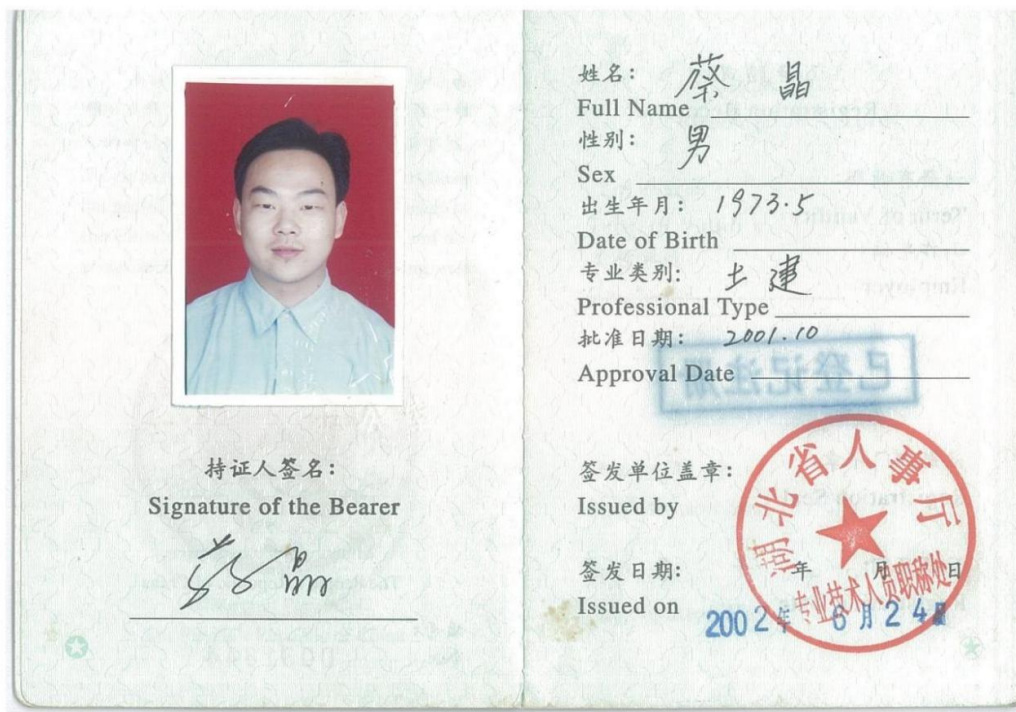 持证人签名:
Signature of the Bearer
蔡晶
姓名: 蔡 晶
Full Name
性别: 男
Sex
出生年月: 1973.5
Date of Birth
专业类别: 土建
Professional Type
批准日期: 2001.10
Approval Date
已登记注册
签发单位盖章:
Issued by
湖北省人事厅
专业技术人员职称处
签发日期: 年 月 日
Issued on 2002年 6月24日